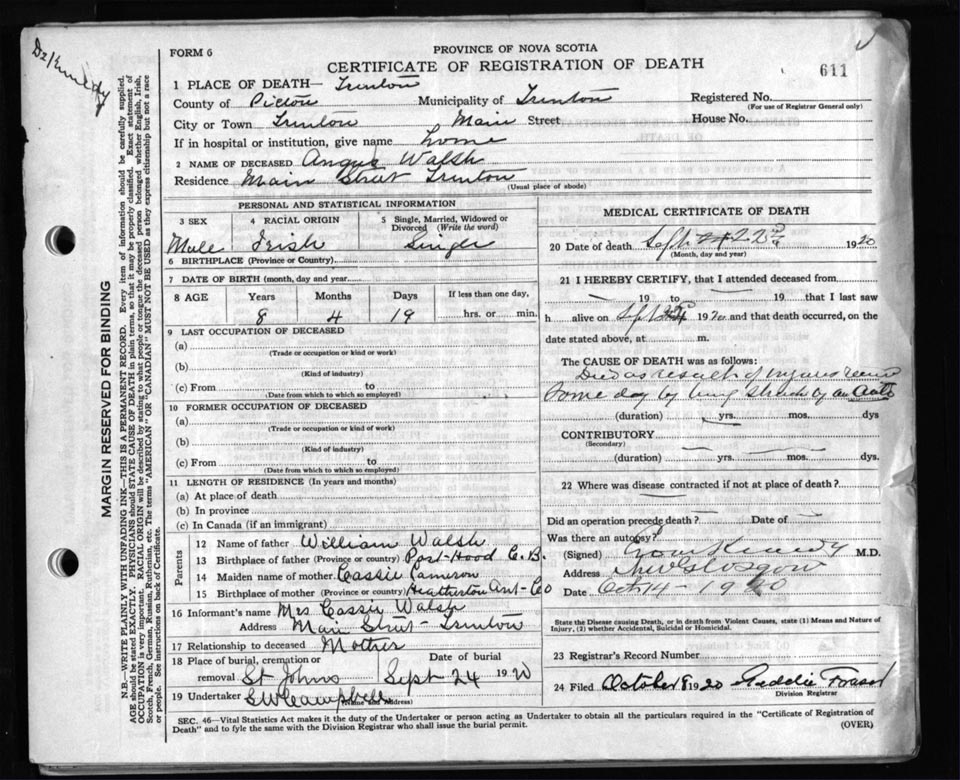 Dr Kennedy
FORM 6
PROVINCE OF NOVA SCOTIA
CERTIFICATE OF REGISTRATION OF DEATH
611
1 PLACE OF DEATH— Trenton
County of Pictou Municipality of Trenton Registered No.
(For use of Registrar General only)
City or Town Trenton Main Street House No.
If in hospital or institution, give name home
2 NAME OF DECEASED Angus Walsh
Residence Main Street Trenton
(Usual place of abode)
PERSONAL AND STATISTICAL INFORMATION
3 SEX 4 RACIAL ORIGIN 5 Single, Married, Widowed or Divorced (Write the word)
Male Irish Single
6 BIRTHPLACE (Province or Country)
7 DATE OF BIRTH (month, day and year)
8 AGE Years Months Days If less than one day,
8 4 19 hrs. or min.
9 LAST OCCUPATION OF DECEASED
(a)
(Trade or occupation or kind or work)
(b)
(Kind of industry)
(c) From to
(Date from which to which so employed)
10 FORMER OCCUPATION OF DECEASED
(a)
(Trade or occupation or kind of work)
(b)
(Kind of industry)
(c) From to
(Date from which to which so employed)
11 LENGTH OF RESIDENCE (In years and months)
(a) At place of death
(b) In province
(c) In Canada (if an immigrant)
Parents
12 Name of father William Walsh
13 Birthplace of father (Province or country) Port-Hood C. B.
14 Maiden name of mother Cassie Cameron
15 Birthplace of mother (Province or country) Heatherton Ant-Co
16 Informant's name Mrs Cassie Walsh
Address Main Street - Trenton
17 Relationship to deceased Mother
18 Place of burial, cremation or removal St Johns Date of burial Sept 24 1920
19 Undertaker (Name and Address)
MEDICAL CERTIFICATE OF DEATH
20 Date of death Sept 22 1920
(Month, day and year)
21 I HEREBY CERTIFY, that I attended deceased from
19 to 19 that I last saw
h alive on Sept 1920 and that death occurred, on
date stated above, at m.
The CAUSE OF DEATH was as follows:
Died as result of injuries
Same day by being struck by an Auto
(duration) yrs. mos. dys
CONTRIBUTORY
(Secondary)
(duration) yrs. mos. dys.
22 Where was disease contracted if not at place of death?
Did an operation precede death? Date of
Was there an autopsy?
(Signed) Kennedy M.D.
Address New Glasgow
Date Oct 14 - 1920
State the Disease causing Death, or in death from Violent Causes, state (1) Means and Nature of Injury, (2) whether Accidental, Suicidal or Homicidal.
23 Registrar's Record Number
24 Filed October 8 1920 Fraser
Division Registrar
SEC. 46—Vital Statistics Act makes it the duty of the Undertaker or person acting as Undertaker to obtain all the particulars required in the "Certificate of Registration of
Death" and to fyle the same with the Division Registrar who shall issue the burial permit.
(OVER)
MARGIN RESERVED FOR BINDING
N.B.—WRITE PLAINLY WITH UNFADING INK—THIS IS A PERMANENT RECORD. Every item of information should be carefully supplied.
AGE should be stated EXACTLY. PHYSICIANS should STATE CAUSE OF DEATH in plain terms, so that it may be properly classified. Exact statement of
OCCUPATION is very important. RACIAL ORIGIN will be described by stating to what people or tongue the deceased person belonged whether English, Irish,
Scotch, French, German, Russian, Ruthenian, etc. The terms "AMERICAN" OR "CANADIAN" MUST NOT BE USED as they express citizenship but not a race
or people. See instructions on back of Certificate.